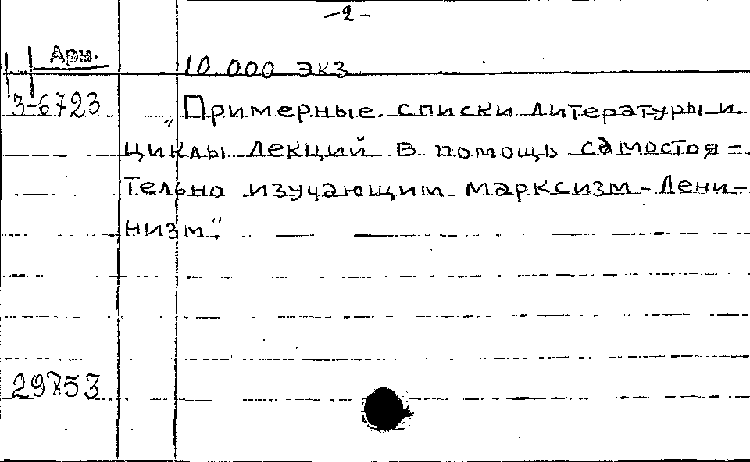 -2-
Арм.
10.000 экз
3-6723
„Примерные списки литературы и
циклы лекций в помощь самостоя-
тельно изучающим марксизм-лени-
низм“.
29753